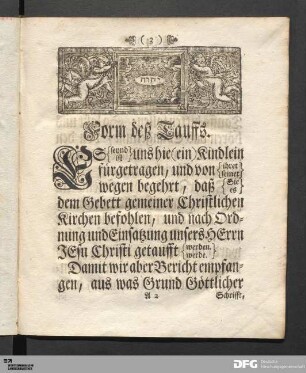 ( 3 )
יהוה
Form deß Tauffs.
ES {seynd / ist} uns hie (ein Kindlein
fürgetragen, und von {ihret / seinet}
wegen begehrt, daß {Sie / es}
dem Gebett gemeiner Christlichen
Kirchen befohlen, und nach Ord-
nung und Einsatzung unsers HErrn
JEsu Christi getaufft {werden. / werde.}
Damit wir aber Bericht empfan-
gen, aus was Grund Göttlicher
A 2 Schrifft,
DFG